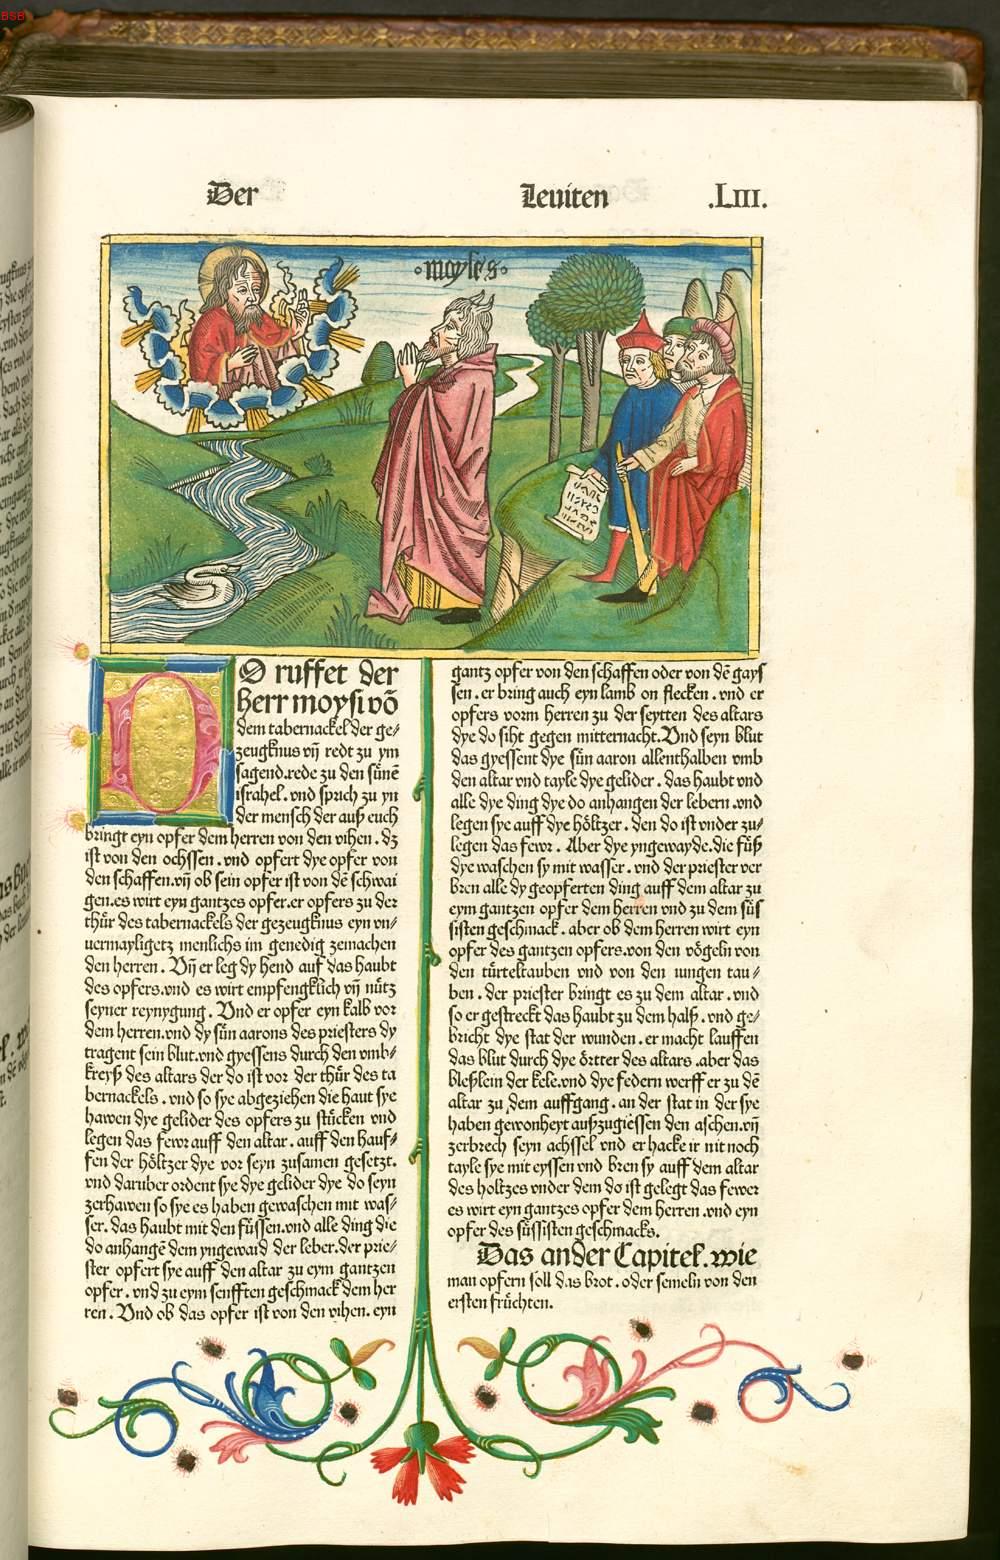 BSB
Der
Leuiten
.LIII.
·moyses·
DO ruffet der
herr moysi võ
dem tabernackel der ge⸗
zeugknus vñ redt zu ym
sagend.rede zu den sünẽ
israhel.vnd sprich zu yn
der mensch der auß euch
bringt eyn opfer dem herren von den vihen.dz
ist von den ochssen.vnd opfert dye opfer von
den schaffen.vñ ob sein opfer ist von dẽ schwai
gen.es wirt eyn gantzes opfer.er opfers zu der
thür des tabernackels der gezeugknus eyn vn⸗
uermayligetz menlichs im genedig zemachen
den herren. Vñ er leg dy hend auf das haubt
des opfers.vnd es wirt empfengklich vñ nütz
seyner reynygung. Vnd er opfer eyn kalb vor
dem herren.vnd dy sün aarons des priesters dy
tragent sein blut.vnd gyessens durch den vmb⸗
kreyß des altars der do ist vor der thür des ta
bernackels. vnd so sye abgeziehen die haut sye
hawen dye gelider des opfers zu stücken vnd
legen das fewr auff den altar. auff den hauf⸗
fen der höltzer dye vor seyn zusamen gesetzt.
vnd daruber ordent sye dye gelider dye do seyn
zerhawen so sye es haben gewaschen mit was⸗
ser. das haubt mit den füssen.vnd alle ding die
do anhangẽ dem yngewaid der leber.der prie⸗
ster opfert sye auff den altar zu eym gantzen
opfer. vnd zu eym senfften geschmack dem her
ren. Vnd ob das opfer ist von den vihen. eyn
gantz opfer von den schaffen oder von dẽ gays
sen. er bring auch eyn lamb on flecken. vnd er
opfers vorm herren zu der seytten des altars
dye do siht gegen mitternacht. Vnd seyn blut
das gyessent dye sün aaron allenthalben vmb
den altar vnd tayle dye gelider. das haubt vnd
alle dye ding dye do anhangen der lebern.vnd
legen sye auff dye höltzer. den do ist vnder zu⸗
legen das fewr. Aber dye yngewayde.die füß
dye waschen sy mit wasser. vnd der priester ver
bren alle dy geopferten ding auff dem altar zu
eym gantzen opfer dem herren vnd zu dem süs
sisten geschmack. aber ob dem herren wirt eyn
opfer des gantzen opfers.von den vögeln von
den türteltauben vnd von den iungen tau⸗
ben. der priester bringt es zu dem altar. vnd
so er gestreckt das haubt zu dem halß. vnd ge⸗
bricht dye stat der wunden. er macht lauffen
das blut durch dye örtter des altars.aber das
bleßlein der kele.vnd dye federn werff er zu dẽ
altar zu dem auffgang. an der stat in der sye
haben gewonheyt außzugiessen den aschen.vñ
zerbrech seyn achssel vnd er hacke ir nit noch
tayle sye mit eyssen vnd bren sy auff dem altar
des holtzes vnder dem do ist gelegt das fewer
es wirt eyn gantzes opfer dem herren.vnd eyn
opfer des süssisten geschmacks.
Das ander Capitel.wie
man opfern soll das brot.oder semeln von den
ersten früchten.